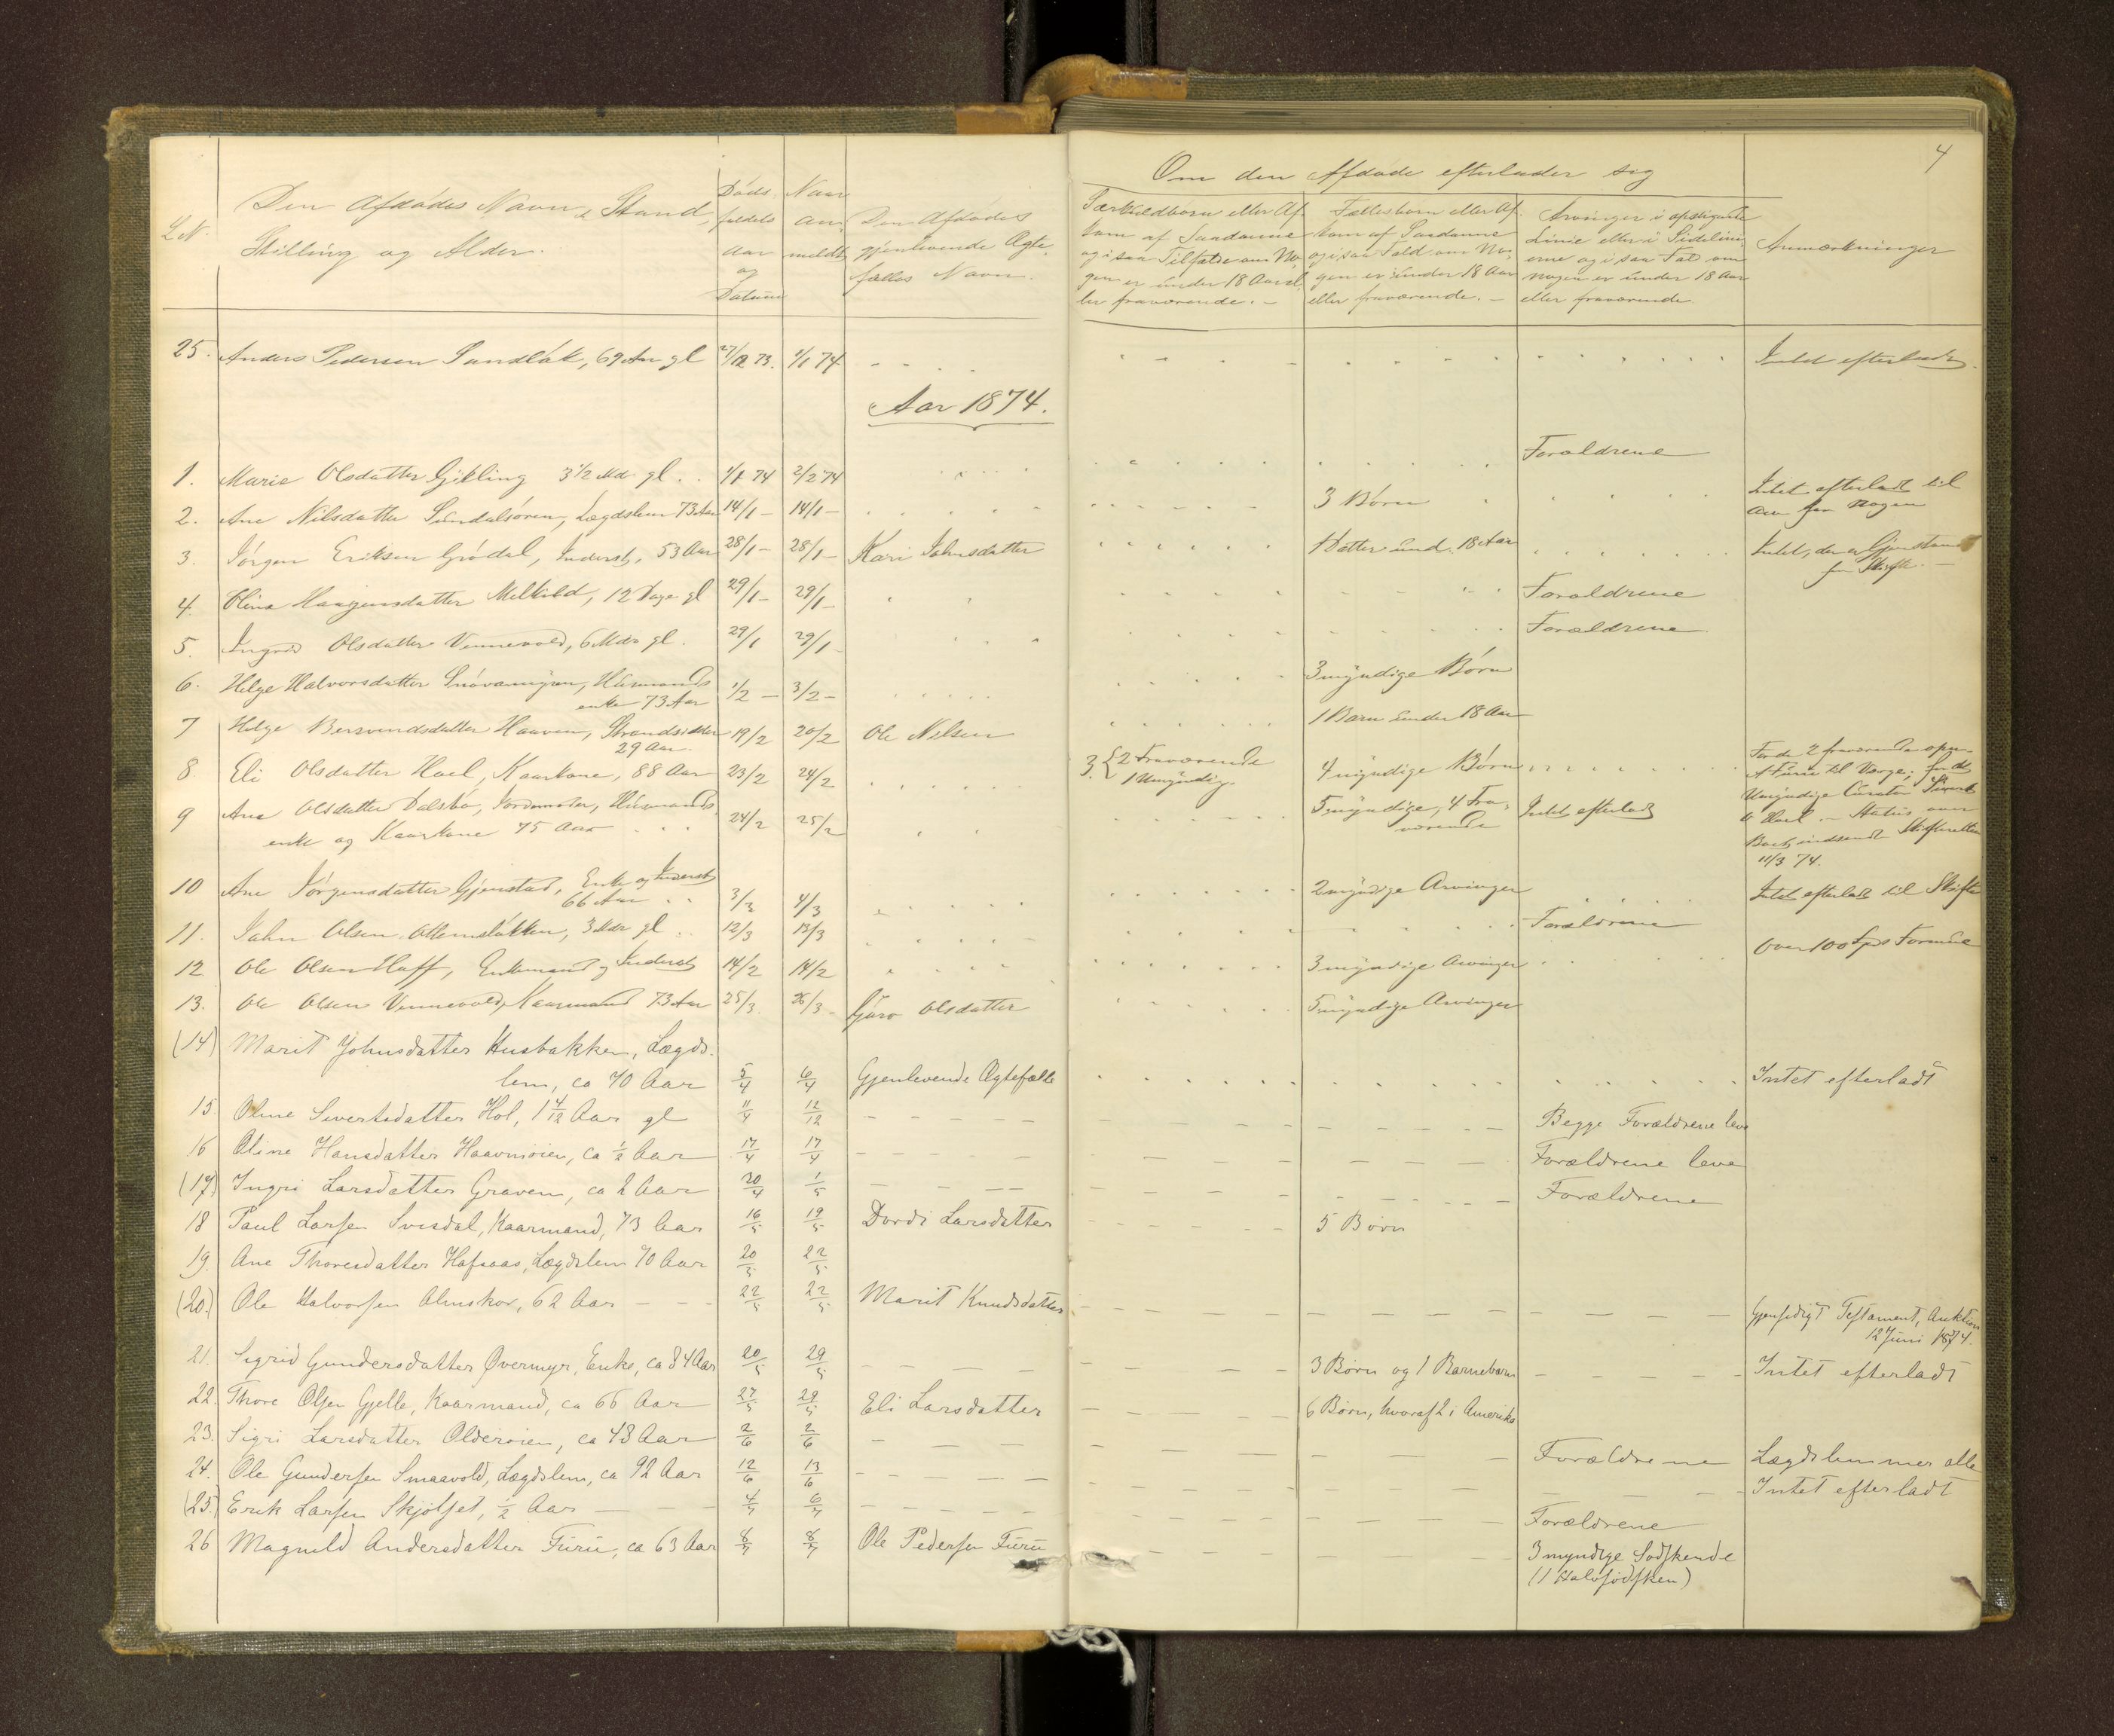 4
Om den Afdøde efterlader sig
L.N. Den Afdødes Navn, Stand, Stilling og Alder. Dødsfaldets Aar og Datum Naar anmeldt Den Afdødes gjenlevende Ægtefælles Navn. Særkuldbørn eller Afkom af Saadanne og i saa Tilfælde om Nogen er under 18 Aar eller fraværende. - Fællesbørn eller Afkom af Saadanne og i saa Fald om Nogen er under 18 Aar eller fraværende. - Arvinger i opstigende Linie eller i Sidelinierne og i saa Fald om nogen er under 18 Aar eller fraværende. Anmærkninger
25. Anders Pedersen Sandløk, 69 Aar gl 27/12 73. 2/1 74 Intet efterladt.
Aar 1874.
1. Marie Olsdatter Gikling 3 1/2 Mdr gl. 1/1 74 2/2 74 Forældrene
2. Ane Nilsdatter Sundalsøren, Lægdslem 73 Aar 14/1 - 14/1 - 3 Børn Intet efterladt til
Arv for Nogen
3. Jørgen Eriksen Grødal, Inderst, 53 Aar 28/1 - 28/1 - Kari Johnsdatter 1 Datter und. 18 Aar Intet, der er Gjenstand
for Skifte. -
4. Olina Haagensdatter Melkild, 12 Dage gl 29/1 - 29/1 - Forældrene
5. Ingrid Olsdatter Vennevold, 6 Mdr gl. 29/1 29/1 - Forældrene
6. Helge Halvorsdatter Snøvamyren, Husmands
enke 73 Aar 1/2 - 3/2 - 3 myndige Børn
7 Helge Bersvendsdatter Haaven, Strandsidder
29 Aar. 19/2 20/2 Ole Nilsen 1 Barn under 18 Aar
8. Eli Olsdatter Hoel, Kaarkone, 88 Aar 23/2 24/2 3 { 2 Fraværende
1 Umyndig. 4 myndige Børn For de 2 fraværende
til Værge; for de
Umyndige Curator Sivert
Hoel. - Status over
Boet indsendt Skifteretten
11/3 74.
9 Ane Olsdatter Dalsbø, Jordemoder, Husmands
enke og Kaarkone 75 Aar 24/2 25/2 5 myndige, 4 Fra-
værende Intet efterladt
10 Ane Jørgensdatter Gjenstad, Enke og Inderst
66 Aar 3/3 4/3 2 myndige Arvinger Intet efterladt til Skifte
11. John Olsen Ottemsløkken, 3 Mdr gl 12/3 13/3 Forældrene
12 Ole Olsen Hoff, Enkemand og Inderst 14/2 14/2 3 myndige Arvinger Over 100 Spd Formue
13. Ole Olsen Vennevold, Kaarmand 73 Aar 25/3 26/3 - Guro Olsdatter 5 myndige Arvinger
(14) Marit Johnsdatter Husbakken, Lægds-
lem, ca 70 Aar 5/4 6/4 Gjenlevende Ægtefælle Intet efterladt
15. Oline Sivertsdatter Hol, 1 4/12 Aar gl 11/4 12/12 Begge Forældrene leve
16 Oline Hansdatter Haavmoien, ca 1/2 Aar 17/4 17/4 Forældrene leve
(17) Ingri Larsdatter Graven, ca 2 Aar 20/4 1/5 Forældrene
18 Paul Larsen Svisdal, Kaarmand, 73 Aar 16/5 19/5 Dordi Larsdatter 5 Børn
19. Ane Thoresdatter Hafsaas, Lægdslem 70 Aar 20/5 22/5
(20.) Ole Halvorsen Almskor, 62 Aar - - - 22/5 22/5 Marit Knudsdatter Gjensidigt Testament, Auktion
12 Juni 1874.
21. Sigrid Gundersdatter Øvermyr, Enke, ca 84 Aar 20/5 29/5 3 Børn og 1 Barnebarn Intet efterladt
22. Thore Olsen Gjelle, Kaarmand, ca 66 Aar 27/5 29/5 Eli Larsdatter 6 Børn, hvoraf 2 i Amerika
23. Sigri Larsdatter Olderøien, ca 43 Aar 2/6 2/6 Forældrene Lægdslemmer alle
24. Ole Gundersen Smaavold, Lægdslem, ca 92 Aar 12/6 13/6 Intet efterladt
(25.) Erik Larsen Skjølset, 1/2 Aar 4/7 6/7 Forældrene
26 Magnild Andersdatter Furu, ca 63 Aar 8/7 8/7 Ole Pedersen Furu 3 myndige Sødskende
(1 Halvsødsken)